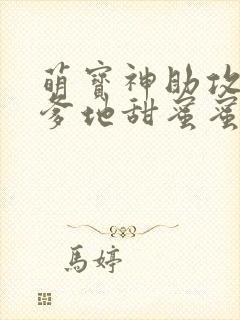 萌寳神助攻
爹地甜蜜蜜
馬婷